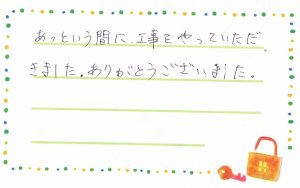 あっという間に、工事をやっていただ
きました。ありがとうございました。